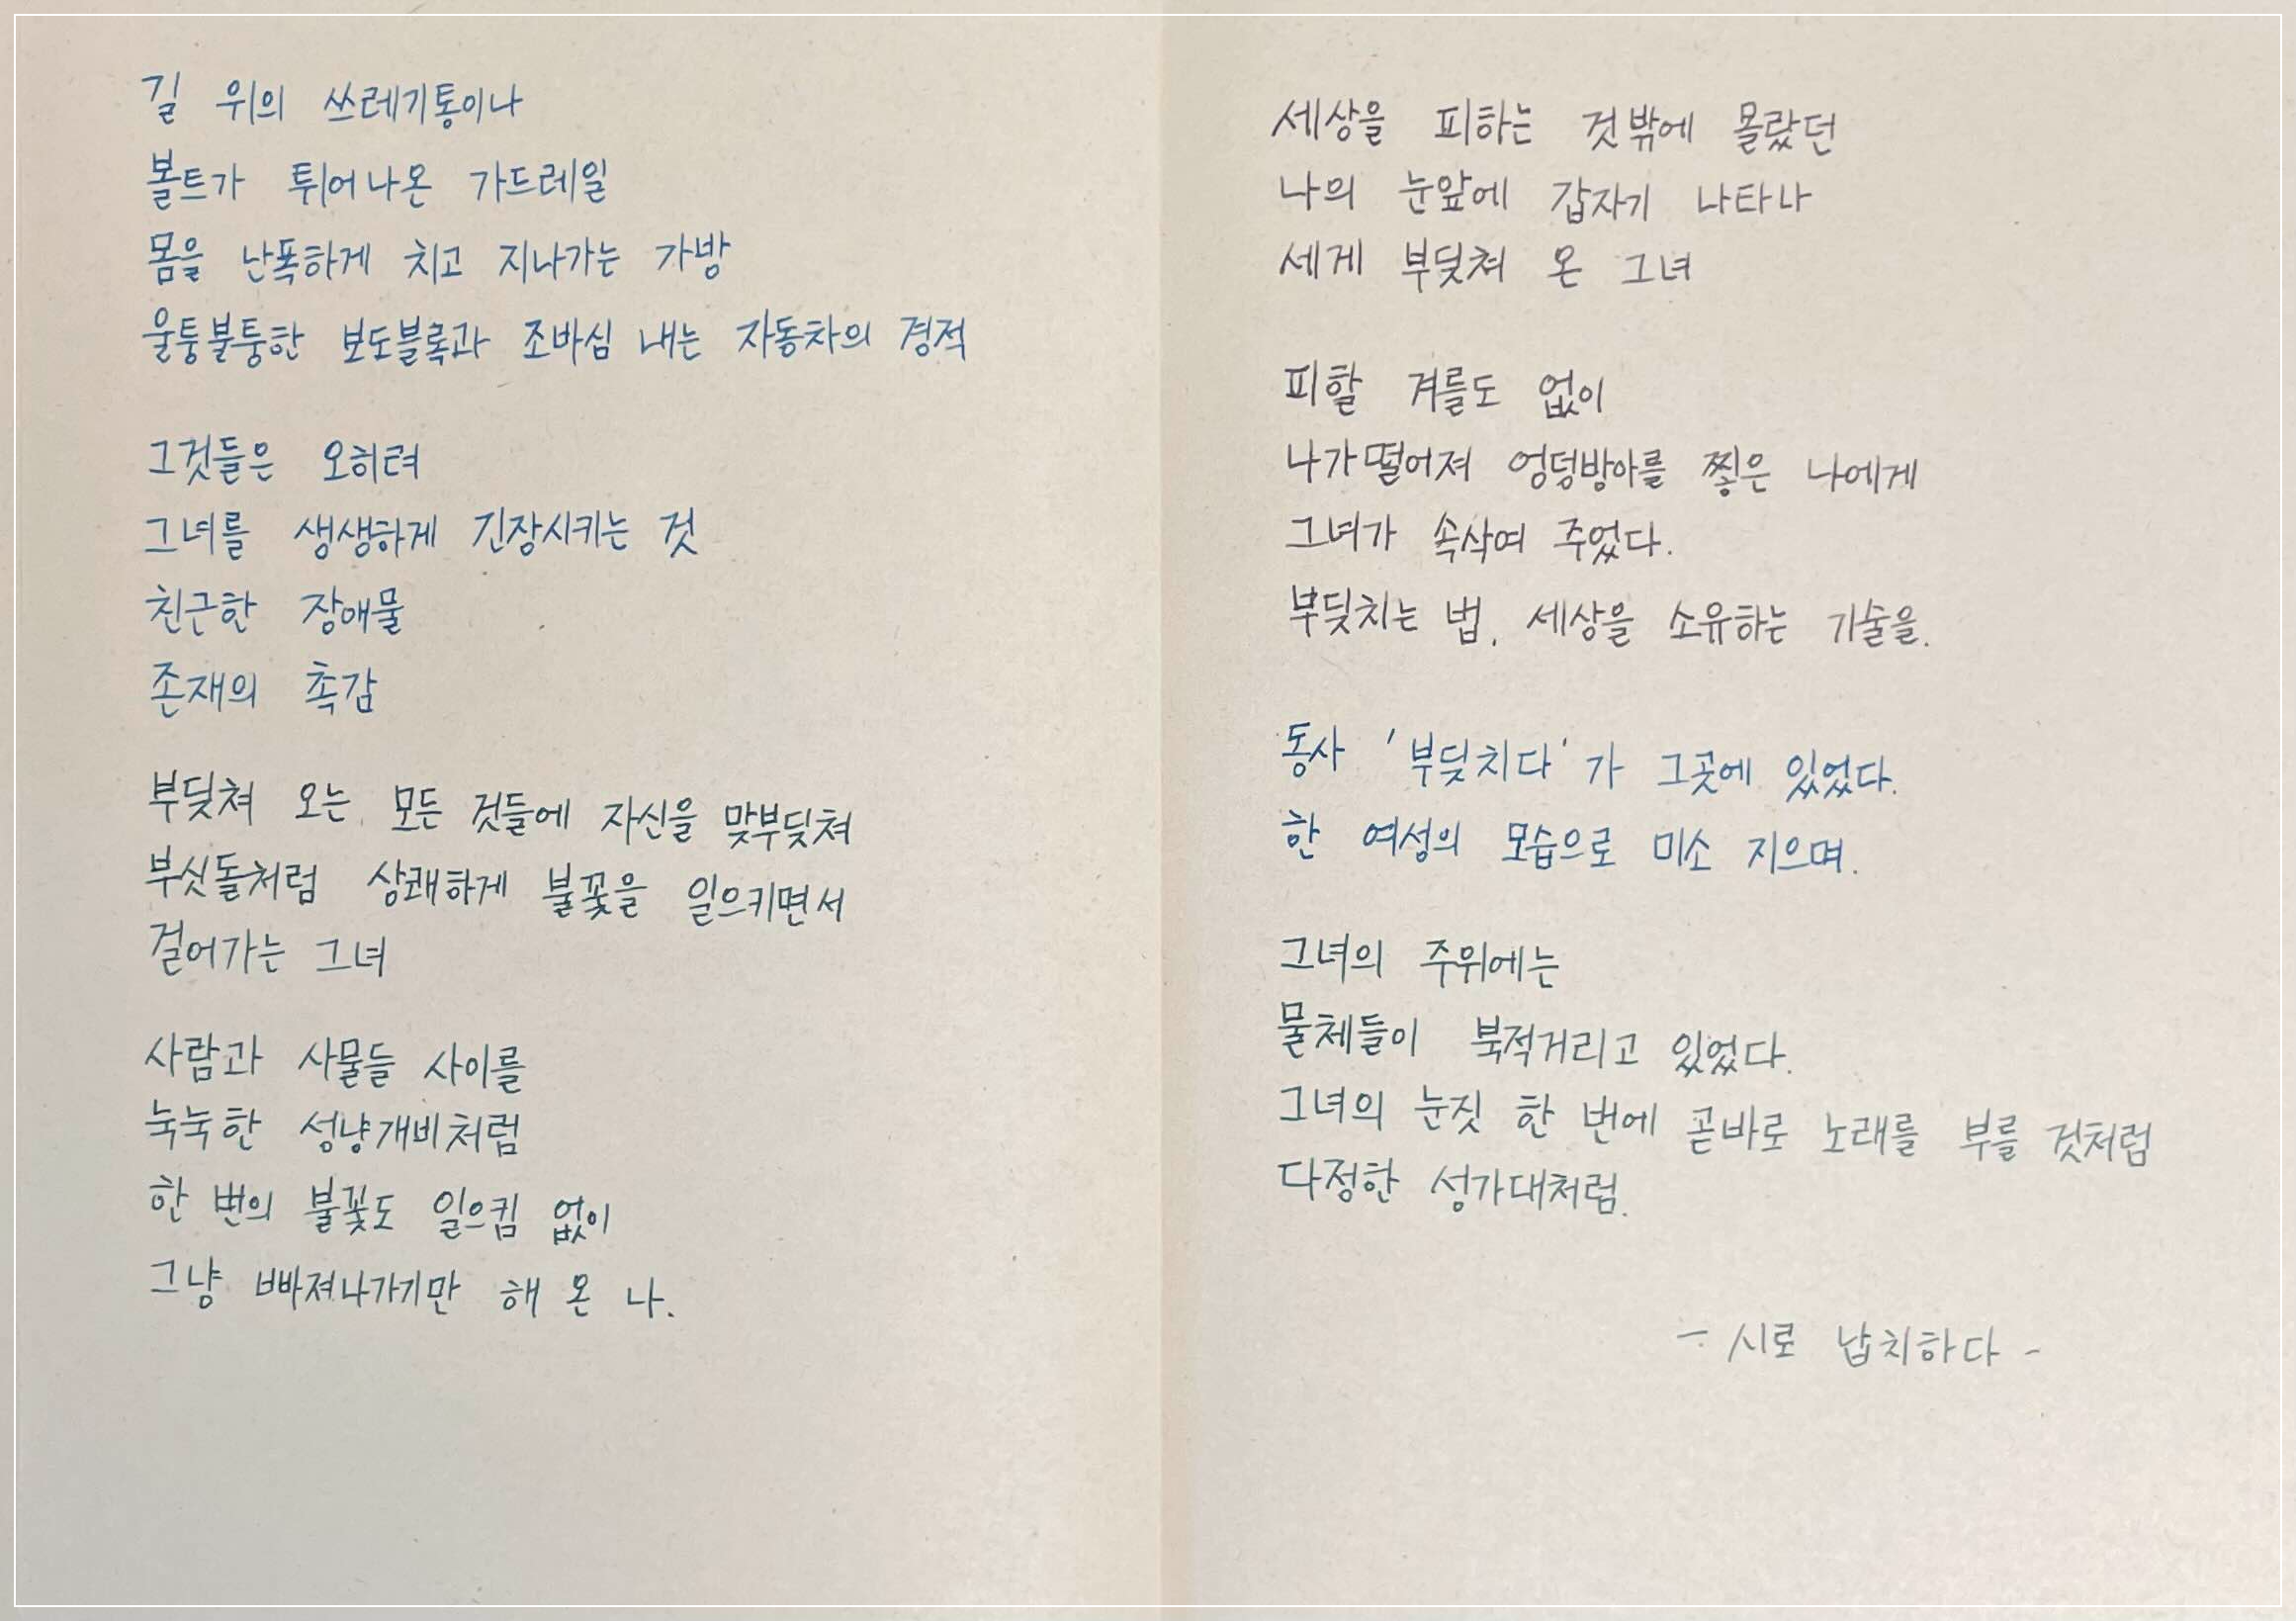 길 위의 쓰레기통이나
볼트가 튀어나온 가드레일
몸을 난폭하게 치고 지나가는 가방
울퉁불퉁한 보도블록과 조바심 내는 자동차의 경적
그것들은 오히려
그녀를 생생하게 긴장시키는 것
친근한 장애물
존재의 촉감
부딪쳐 오는 모든 것들에 자신을 맞부딪쳐
부싯돌처럼 상쾌하게 불꽃을 일으키면서
걸어가는 그녀
사람과 사물들 사이를
눅눅한 성냥개비처럼
한 번의 불꽃도 일으킴 없이
그냥 빠져나가기만 해 온 나.
세상을 피하는 것밖에 몰랐던
나의 눈앞에 갑자기 나타나
세게 부딪쳐 온 그녀
피할 겨를도 없이
나가떨어져 엉덩방아를 찧은 나에게
그녀가 속삭여 주었다.
부딪치는 법, 세상을 소유하는 기술을.
동사 '부딪치다'가 그곳에 있었다.
한 여성의 모습으로 미소 지으며.
그녀의 주위에는
물체들이 북적거리고 있었다.
그녀의 눈짓 한 번에 곧바로 노래를 부를 것처럼
다정한 성가대처럼.
- 시로 납치하다 -